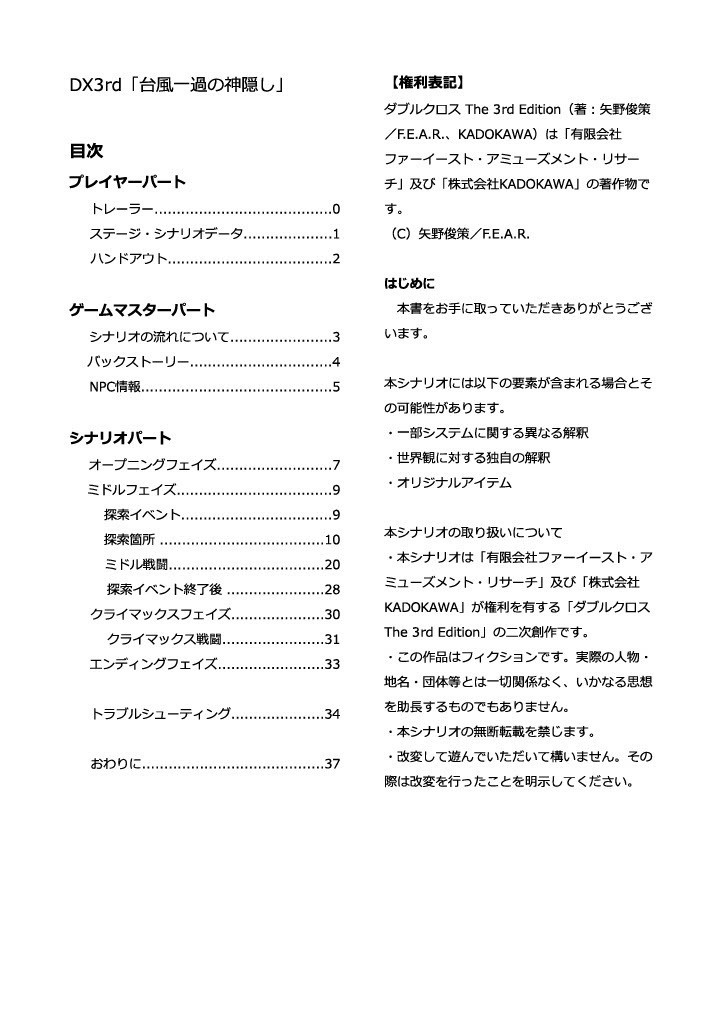 DX3rd「台風一過の神隠し」
目次
プレイヤーパート
トレーラー........................................0
ステージ・シナリオデータ....................1
ハンドアウト.....................................2
ゲームマスターパート
シナリオの流れについて.......................3
バックストーリー................................4
NPC情報...........................................5
シナリオパート
オープニングフェイズ..........................7
ミドルフェイズ...................................9
探索イベント..................................9
探索箇所 .....................................10
ミドル戦闘...................................20
探索イベント終了後 ......................28
クライマックスフェイズ.....................30
クライマックス戦闘.......................31
エンディングフェイズ........................33
トラブルシューティング.....................34
おわりに.........................................37
【権利表記】
ダブルクロス The 3rd Edition（著：矢野俊策
／F.E.A.R.、KADOKAWA）は「有限会社
ファーイースト・アミューズメント・リサー
チ」及び「株式会社KADOKAWA」の著作物で
す。
（C）矢野俊策／F.E.A.R.
はじめに
　本書をお手に取っていただきありがとうござ
います。
本シナリオには以下の要素が含まれる場合とそ
の可能性があります。
・一部システムに関する異なる解釈
・世界観に対する独自の解釈
・オリジナルアイテム
本シナリオの取り扱いについて
・本シナリオは「有限会社ファーイースト・ア
ミューズメント・リサーチ」及び「株式会社
KADOKAWA」が権利を有する「ダブルクロス
The 3rd Edition」の二次創作です。
・この作品はフィクションです。実際の人物・
地名・団体等とは一切関係なく、いかなる思想
を助長するものでもありません。
・本シナリオの無断転載を禁じます。
・改変して遊んでいただいて構いません。その
際は改変を行ったことを明示してください。